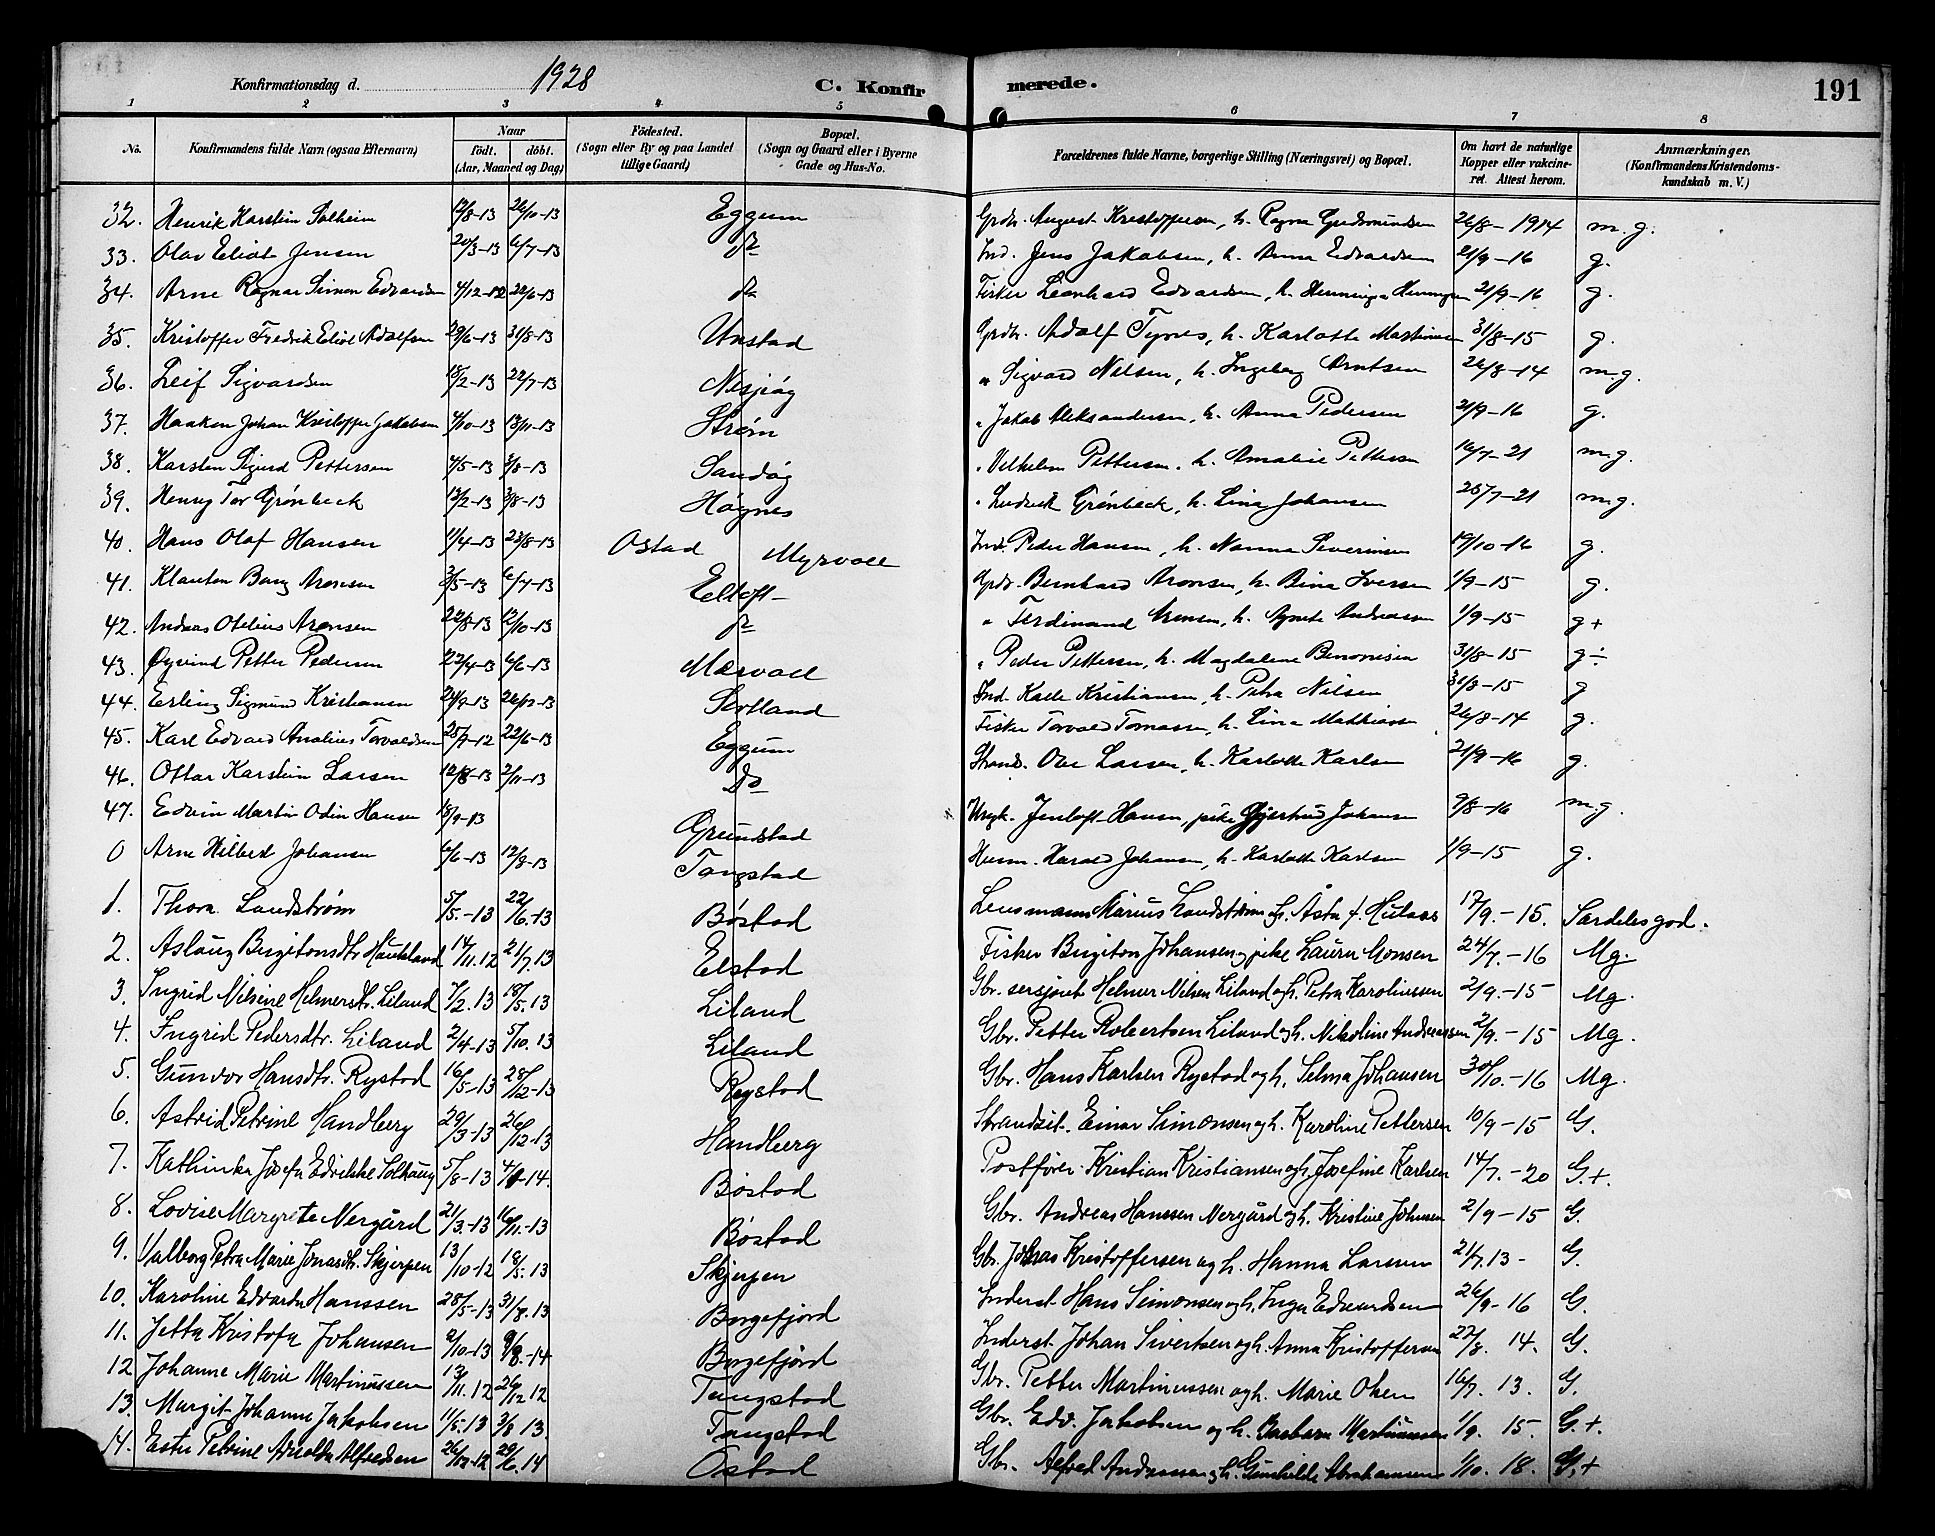 Konfirmationsdag d. 1928 C. Konfirmerede. 191
1 2 3 4 5 6 7 8
No. Konfirmandens fulde Navn (ogsaa Efternavn) Naar født. døbt. (Aar, Maaned og Dag) Fødested. (Sogn eller By og paa Landet tillige Gaard.) Bopæl. (Sogn og Gaard eller i Byerne Gade og Hus-No. Forældrenes fulde Navne, borgerlige Stilling (Næringsvei) og Bopæl. Om havt de naturlige Kopper eller vakcineret. Attest herom. Anmærkninger. (Konfirmandens Kristendomskundskab m. V.)
32. Henrik Karstein Solheim 26/10-13 Eggum Grdbr. August Kristoffersen, h. Ragna Gudmundsen 26/8-1914 m.g.
33. Olav Eliot Jensen 20/3-13 6/7-13 do Ind. Jens Jakobsen, h. Anna Edvardsen 21/9-16 g.
34. Arne Ragnar Simon Edvardsen 4/12-12 22/6-13 do Fisker Leonhard Edvardsen, h. Henninga 21/9-16 g.
35. Kristoffer Fredrik Eliot Adolfsen 29/6-13 31/8-13 Unstad Grdbr. Adolf Tynes, h. Karlotte 31/8-15 g.
36. Leif Sigvardsen 18/2-13 22/7-13 " Sigvard Nilsen, h. Ingeborg Arntsen 26/8-14 m.g.
37. Haakon Johan Kristoffer Jakobsen 4/10-13 13/11-13 Strøm " Jakob Aleksandersen, h. Anna Pedersen 21/9-16 g.
38. Karsten Sigurd Pettersen 4/5-13 3/8-13 Sandøy " Vilhelm Pettersen, h. Amalie Pettersen 16/7-21 m.g.
39. Henry Tor Grønbeck 13/2-13 3/8-13 Høgnes " Ludvik Grønbeck, h. Lina Johansen 25/7-21 m.g.
40. Hans Olaf Hansen 11/4-13 23/8-13 Ostad Myrvoll Ind. Peder Hansen, h. Nanna Severinsen 19/10-16 g.
41. Bang Aronsen 3/5-13 6/7-13 Eltoft Grdbr. Bernhard Aronsen, h. Bina Iversen 1/9-15 g.
42. Andreas Otelius Aronsen 22/8-13 12/10-13 do " Ferdinand Aronsen, h. Agnete Andreassen 1/9-15 g+
43. Øyvind Petter Pedersen 22/4-13 6/6-13 Mærvoll " Peder Pettersen, h. Magdalene Benonisen 31/8-15 g÷
44. Erling Sigmund Kristiansen 24/9-13 26/12-13 Sortland Ind. Kristiansen, h. Petra Nilsen 31/8-15 g
45. Karl Edvard Analius Torvaldsen 25/7-12 22/6-13 Eggum Fisker Torvald Tomassen, h. Lina Mathiassen 26/8-14 g.
46. Ottar Karstein Larsen 12/8-13 2/11-13 Do Strands. Ove Larsen, h. Karlotte Karlsen 21/9-16 g.
47. Edvin Martin Odin Hansen 18/9-13 Grundstad Ungk. Jentoft Hansen, pike Gjertrud Johansen 9/8-16 m.g.
0 Arne Hilbert Johansen 6/6-13 12/8-13 Tangstad Husm. Harald Johansen, h. Karlotte Karlsen 1/9-15 g.
1. Thora Landstrøm 5/5.-13 22/6.-13 Bøstad Lensmann Marius Landstrøm oh. Åsta f. Hulaas 17/9.-15. Særdeles god.
2. Aslaug Birgitonsdtr. Haukland 14/11.12 21/7.13 Elstad Fisker Birgiton Johansen og pike Laura Monsen 24/7.-16 Mg.
3. Ingrid Nilsine Helmersdtr. Liland 7/2.13 18/5.13 Liland Gbr. Helmer Nilsen Liland oh. Petra Karoliussen 2/9.-15 Mg.
4. Ingrid Pedersdtr. Liland 2/4-13 5/10.13 Liland Gbr. Petter Robertsen Liland og h. Nikoline Andreassen 2/9.-15 Mg.
5. Gunvor Hansdtr. Rystad 16/5-13 28/12-13 Rystad Gbr. Hans Karlsen Rystad og h. Selma Johansen 30/10.-16 Mg.
6. Astrid Petrine Handberg 29/3-13 26/12-13 Handberg Strandsit. Einar Simonsen og h. Karoline Pettersen 10/9-15 G.
7. Kathinka Josefa Edvikke Solhaug 5/8-13 Bøstad Postfører Kristian Kristiansen og h. Josefine Karlsen 14/7.-20 G.+.
8. Lovise Margrete Nergård 21/3.-13 16/11.-13 Bøstad Gbr. Andreas Hanssen Nergård og h. Kristine Johnsen 2/9-15 G.
9. Valborg Petra Marie Jonasdtr. Skjerpen 13/10-12 18/5.13 Skjerpen Gbr. Jonas Kristoffersen og h. Hanna Larsen 21/7.13- G.
10. Karoline Edvarda Hanssen 28/5-13 31/8.13 Borgefjord Inderst. Hans Simonsen og h. Inga Edvardsen 26/9-16 G.
11. Jetta Kristofa Johansen 2/10-13 9/8.-14 Borgefjord Inderst. Johan Sivertsen og h. Anna Kristoffersen 27/8. 14. G.
12 Johanne Marie Martinussen 13/11.12 26/12 12 Tangstad Gbr. Petter Martinussen og h. Marie Olsen 16/7. 13. G.
13. Margit Johanne Jakobsen 11/5.13 3/8 13. Tangstad Gbr. Edv. Jakobsen og h. Barbara Martinussen 1/9. 15. G.+.
14. Ester Petrine Arnolda Alfredsen 26/12-12 29/6.14 Ostad Gbr. Alfred Andreassen og h. Gunhilde Abrahamsen 1/10. 18. G.+